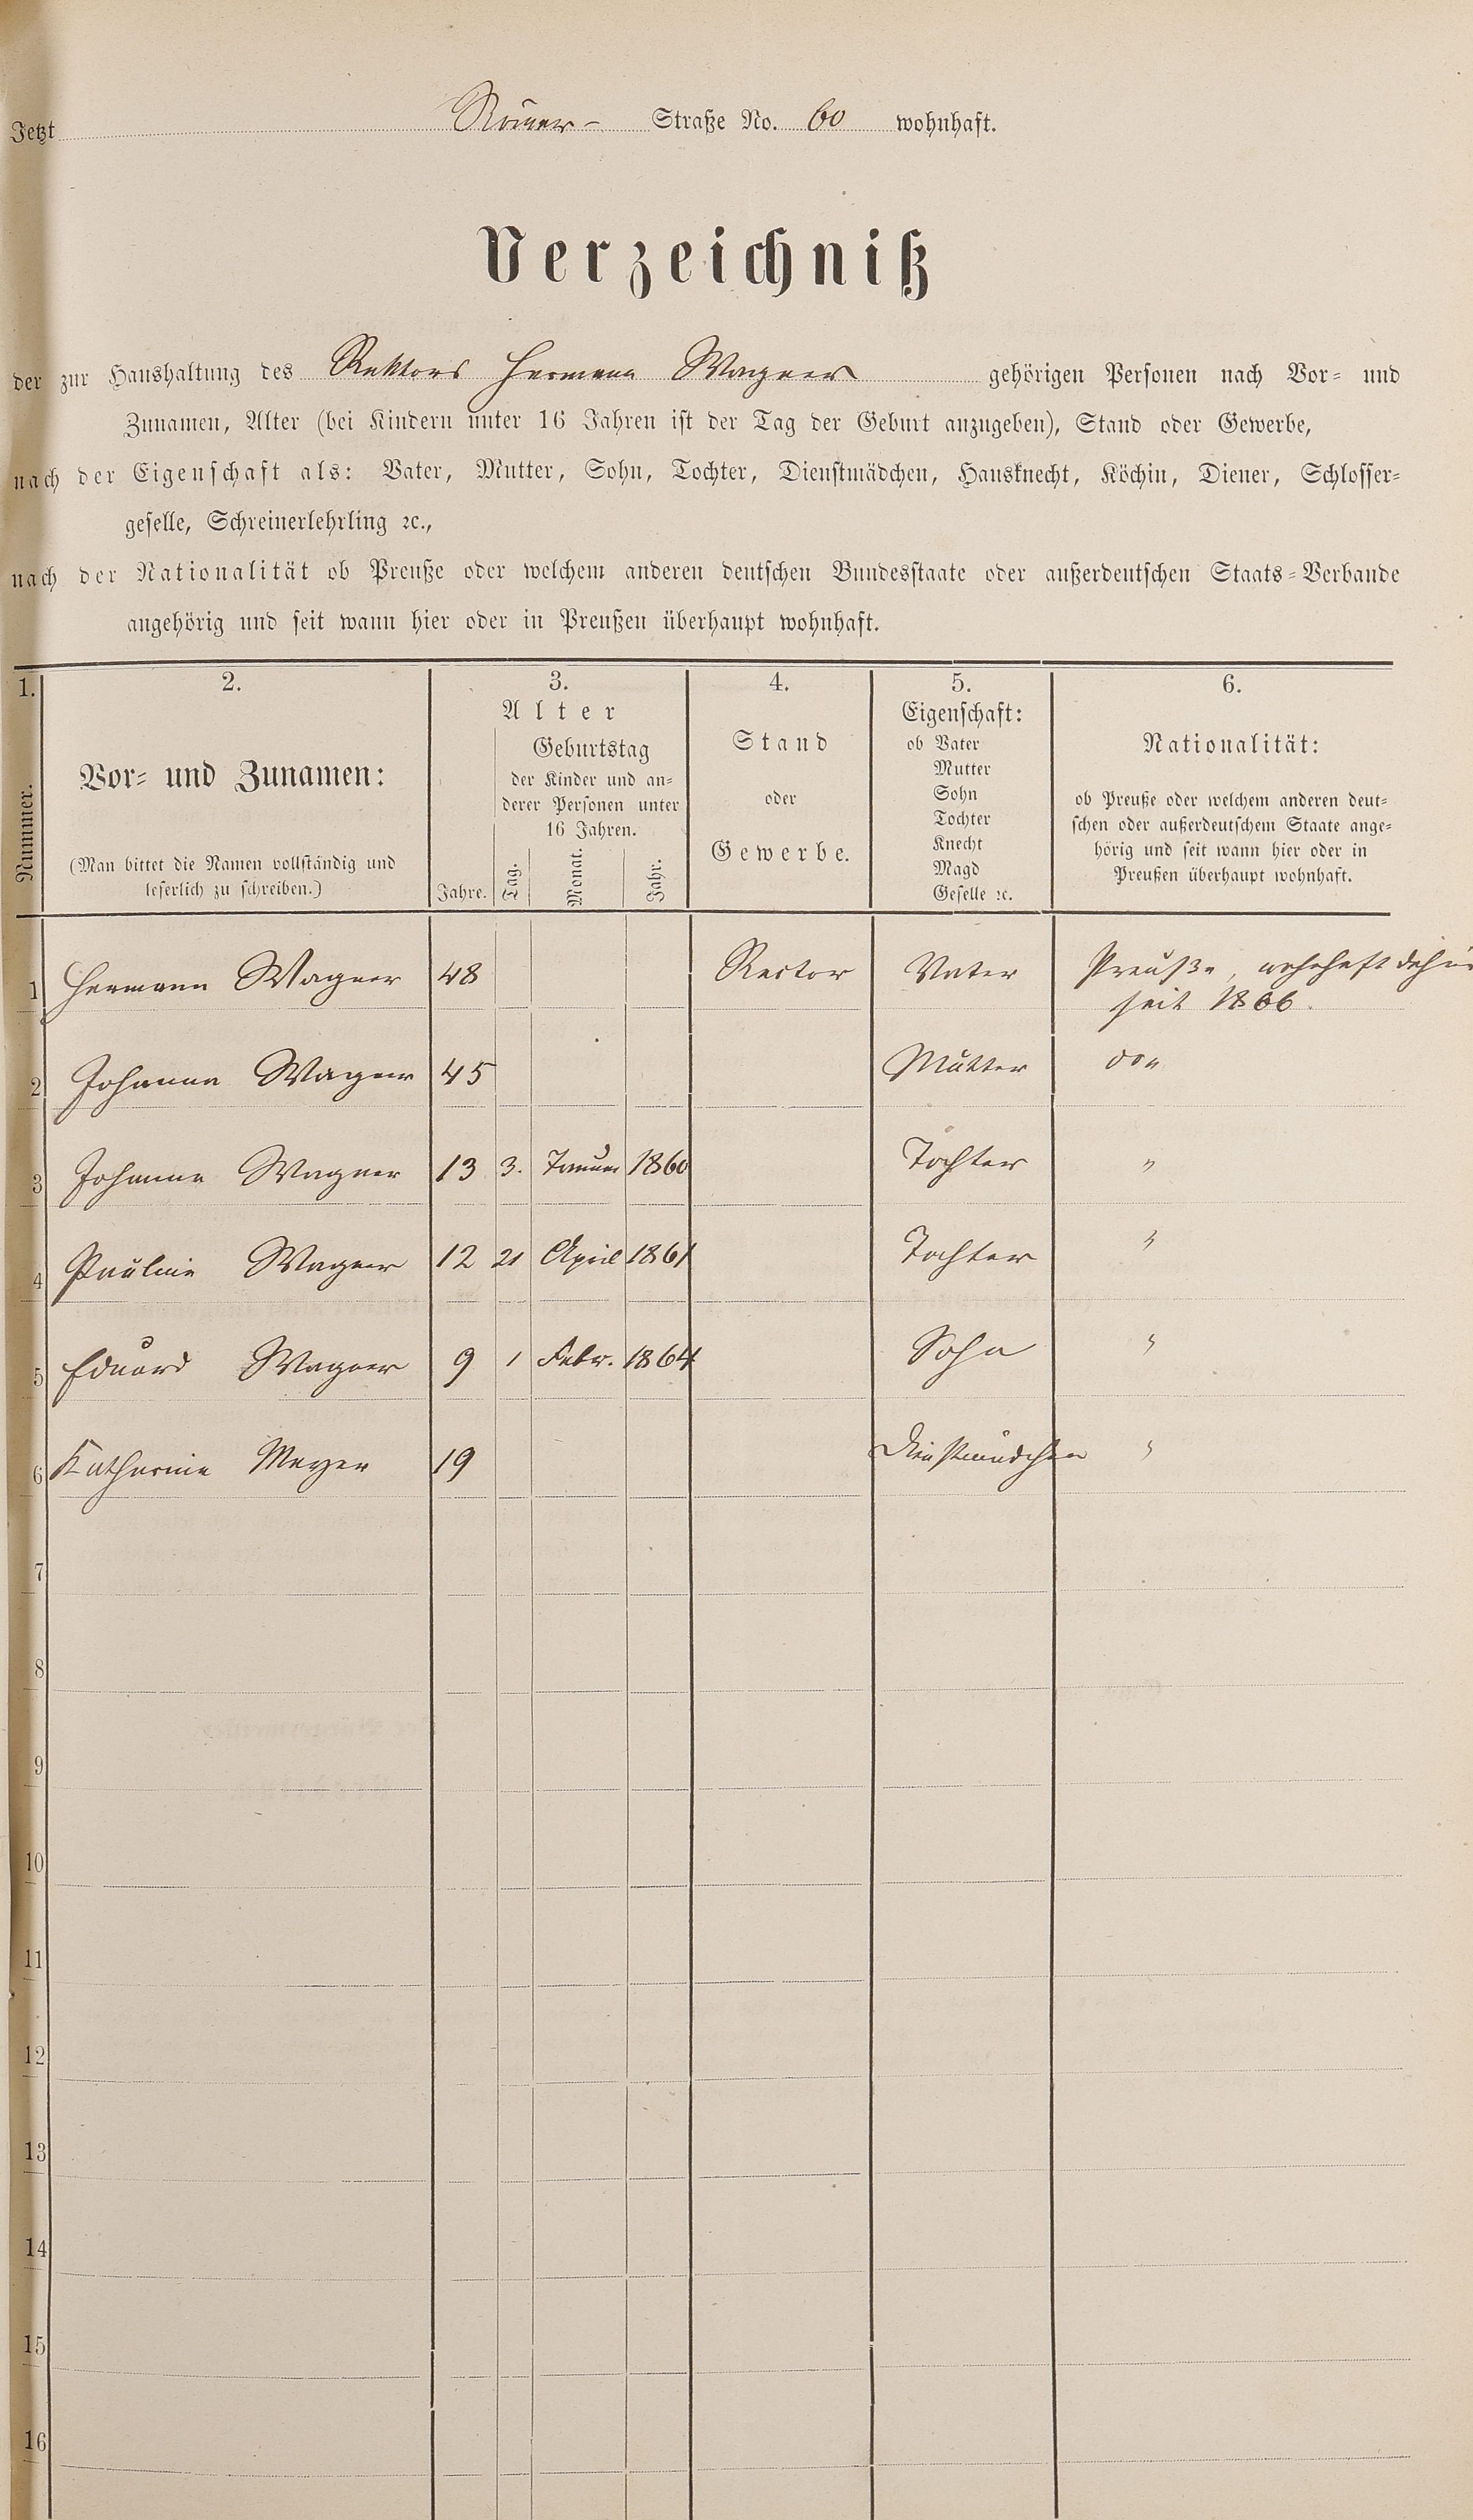 Jetzt Römer- Straße No. 60 wohnhaft.
Verzeichniß
der zur Haushaltung des Rektors Hermann Wagner gehörigen Personen nach Vor- und
Zunamen, Alter (bei Kindern unter 16 Jahren ist der Tag der Geburt anzugeben), Stand oder Gewerbe,
nach der Eigenschaft als: Vater, Mutter, Sohn, Tochter, Dienstmädchen, Hausknecht, Köchin, Diener, Schlosser-
geselle, Schreinerlehrling ꝛc.,
nach der Nationalität ob Preuße oder welchem anderen deutschen Bundesstaate oder außerdeutschen Staats-Verbande
angehörig und seit wann hier oder in Preußen überhaupt wohnhaft.
1.
Nummer.
2.
Vor- und Zunamen:
(Man bittet die Namen vollständig und
leserlich zu schreiben.)
3.
Alter
Jahre.
Geburtstag
der Kinder und an-
derer Personen unter
16 Jahren.
Tag. Monat. Jahr.
4.
Stand
oder
Gewerbe.
5.
Eigenschaft:
ob Vater
Mutter
Sohn
Tochter
Knecht
Magd
Geselle ꝛc.
6.
Nationalität:
ob Preuße oder welchem anderen deut-
schen oder außerdeutschem Staate ange-
hörig und seit wann hier oder in
Preußen überhaupt wohnhaft.
1 Hermann Wagner 48 Rector Vater Preuße, wohnhaft
seit 1866.
2 Johanna Wagner 45 Mutter
3 Johanna Wagner 13 3. Januar 1860 Tochter "
4 Pauline Wagner 12 21 April 1861 Tochter "
5 Eduard Wagner 9 1 Febr. 1864 Sohn "
6 Katharina Meyer 19 Dienstmädchen "
7
8
9
10
11
12
13
14
15
16